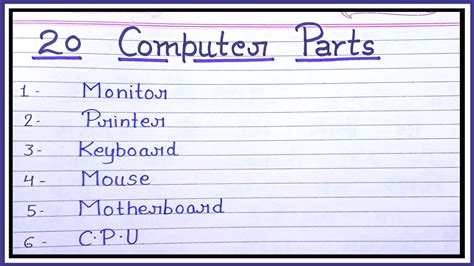 20 Computer Parts
1- Monitor
2- Printer
3- Keyboard
4- Mouse
5- Motherboard
6- C.P.U